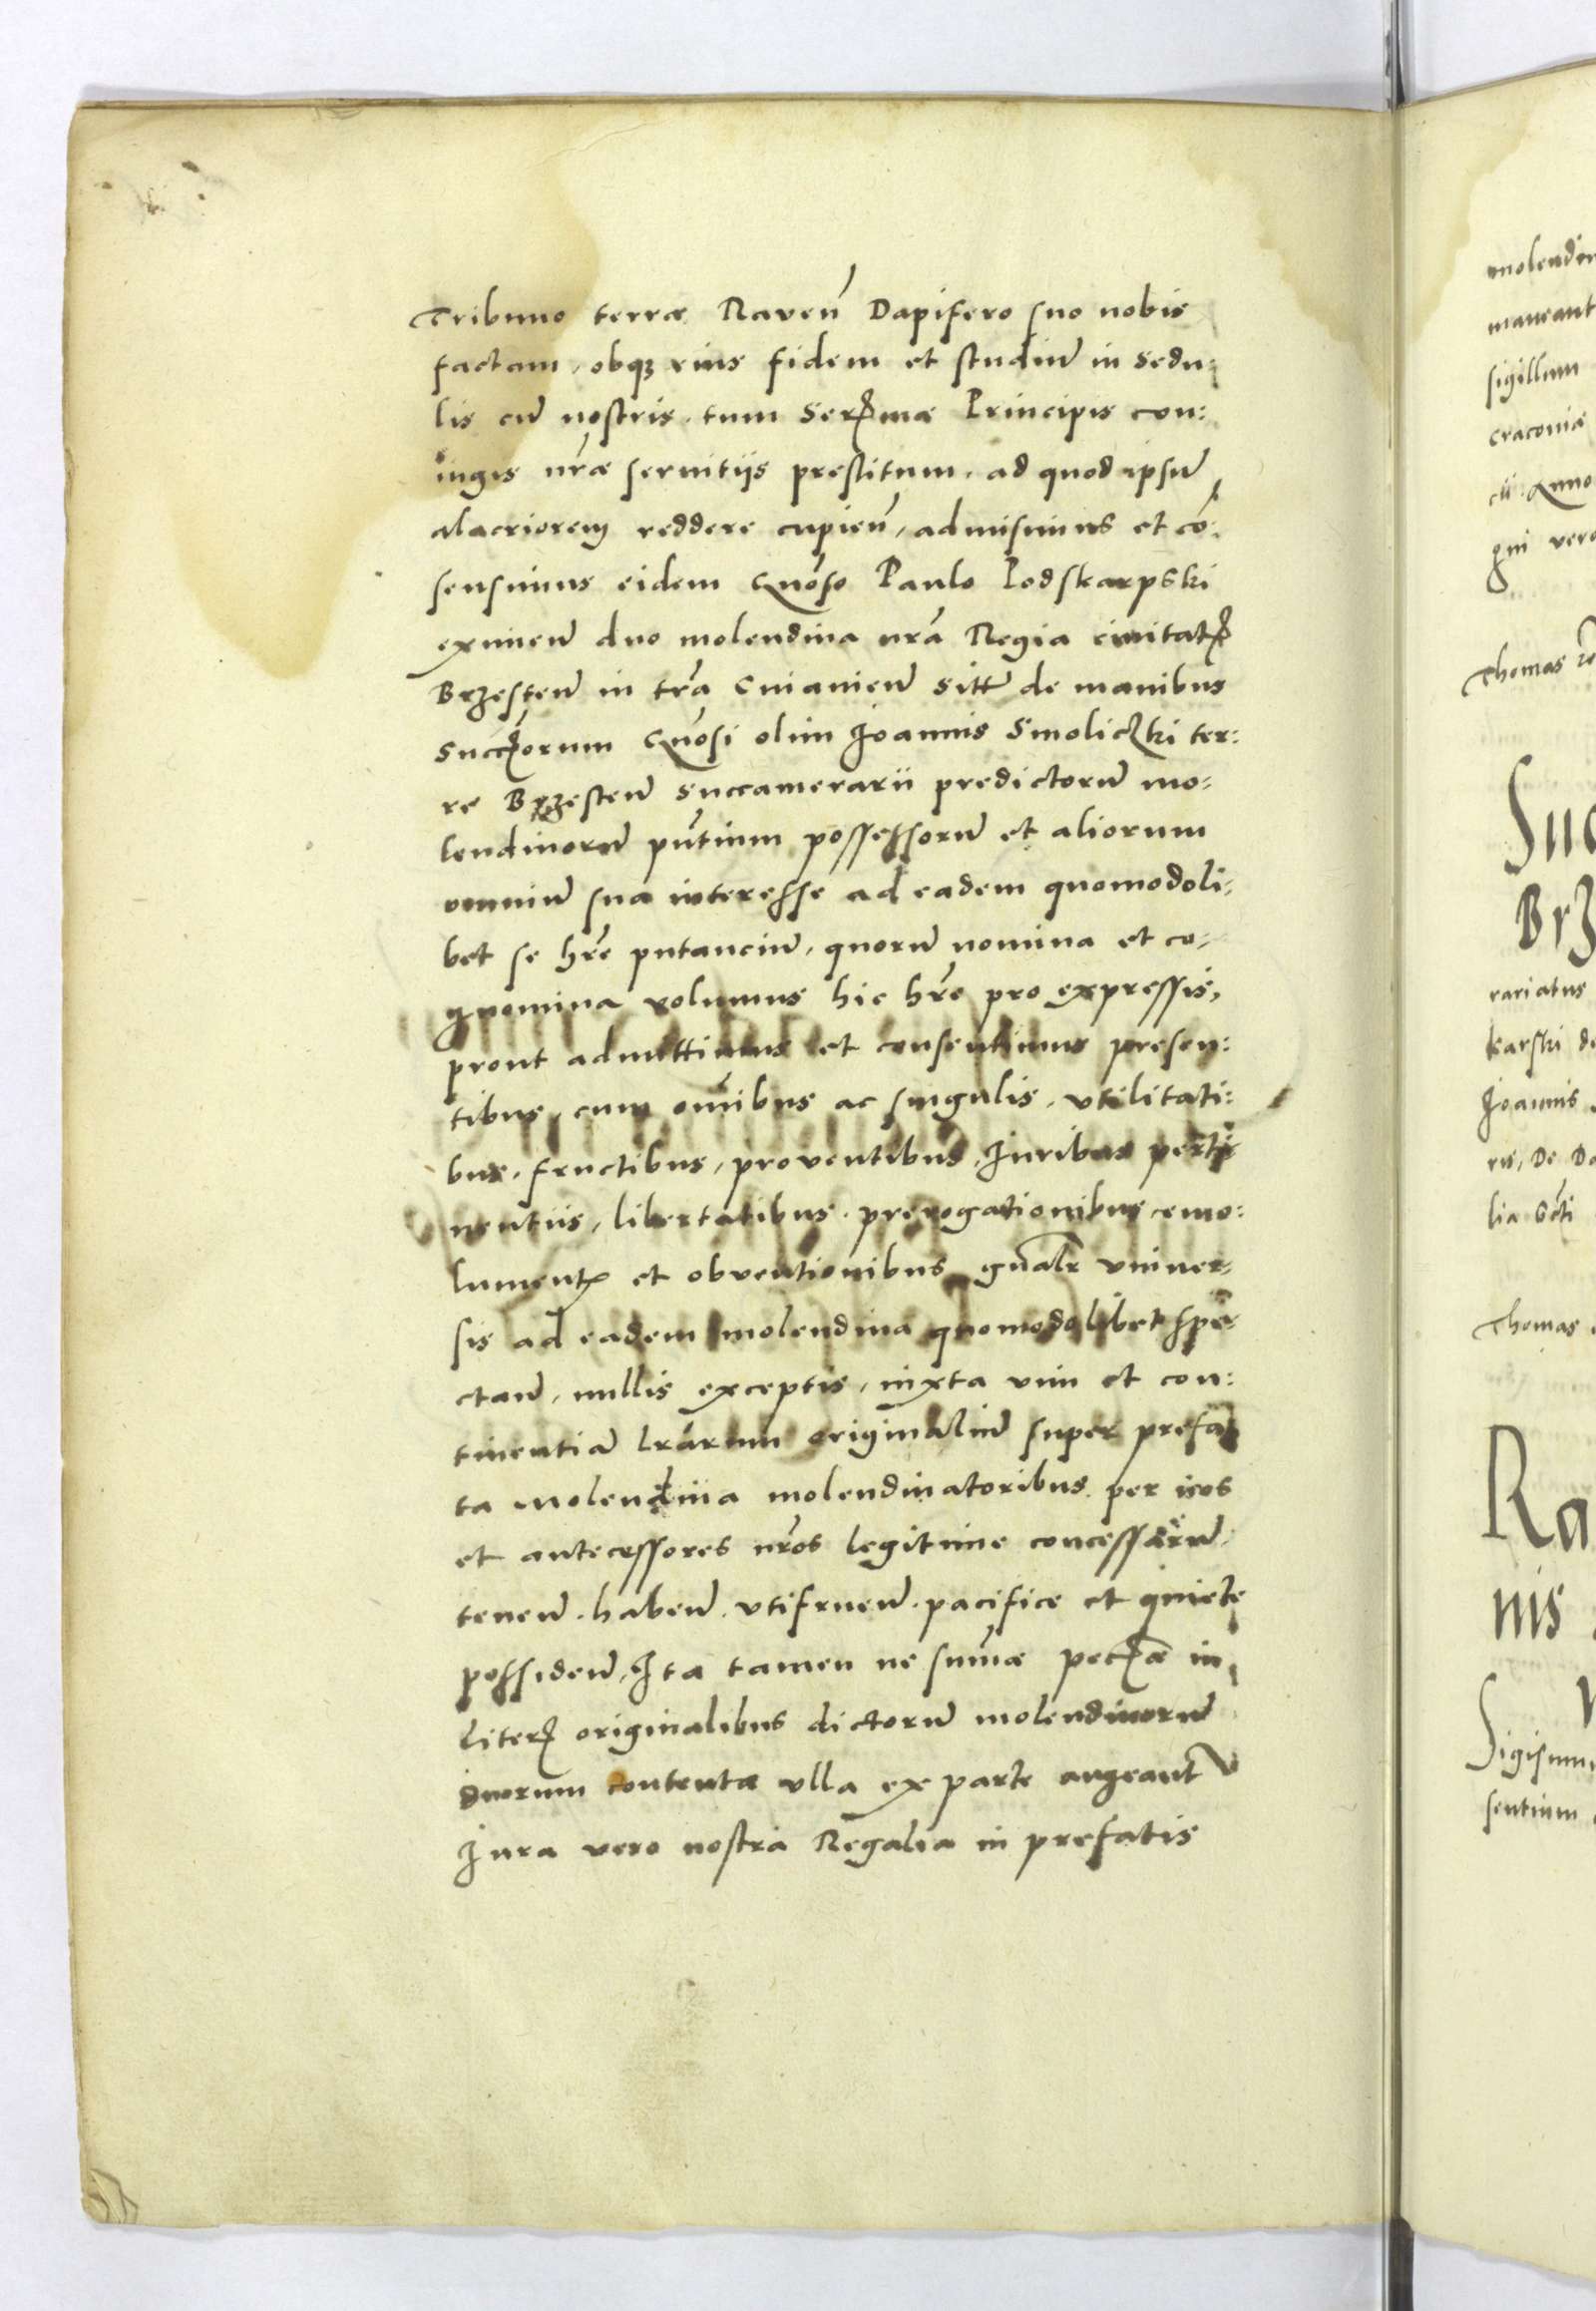 Tribuno terræ Raveñ Dapifero suo nobis
factam, obqȝ eius fidem et studiũ in sedu¬
lis cũ nostris, tum Serꝫmæ Principis con:
iugis nr̃æ seruitijs prestitum, ad quod ipsũ
alacriorem reddere cupieñ, admisimus et cõ:
sensimus eidem Gnõso Paulo Podskarpski
eximeñ duo molendina nrã Regia ciuitatꝫ
Brzesteñ in trã Cuiauieñ sitt̃ de manibus
succꝫorum Gnõsi olim Joannis Smoliczki ter:
re Brzesteñ Succamerarii predictorũ mo¬
lendinorũ pñtium possessorũ et aliorum
omniũ sua interesse ad eadem quomodoli¬
bet se hr̃e putanciũ, quorũ nomina et co¬
gnomina volumus hic hr̃e pro expressis,
prout admittimus et consentimus presen:
tibus, cum om̃ibus ac singulis, vtilitati:
bus, fructibus, proventibus, Juribus perti
nentiis, libertatibus, prerogationibus emo:
lumentꝫ et obventionibus gnãlr vniuer¬
sis ad eadem molendina quomodolibet spe¬
ctañ, nullis exceptis, iuxta vim et con:
tinentiã lrãrum originaliũ super prefa
ta Molendina molendinatoribus per nos
et antecessores nr̃os legitime concessarũ,
teneñ, habeñ, vtifrueñ, pacifice et quiete
possideñ, Ita tamen ne sum̃æ pecꝫæ in
literꝫ originalibus dictorũ molendinorũ
duorum contentæ vlla ex parte augeant̃
Jura vero nostra Regalia in prefatis
molendin
maneant
sigillum
Craconiæ
Anno
gni vero
Thomas
Suc
Brz
rariatus
karski de
Joannis
ris, De Do
lia
Thomas
Ra
nis
Sigismu
sentium